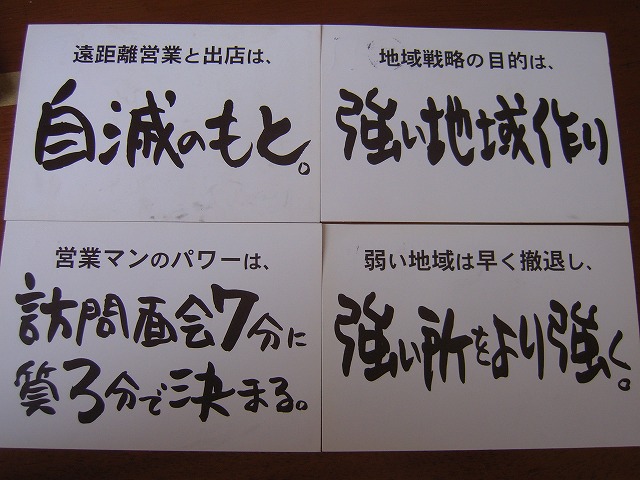 遠距離営業と出店は、
自滅のもと。
地域戦略の目的は、
強い地域作り
営業マンのパワーは、
訪問面会7分に
質3分で決まる。
弱い地域は早く撤退し、
強い所をより強く。